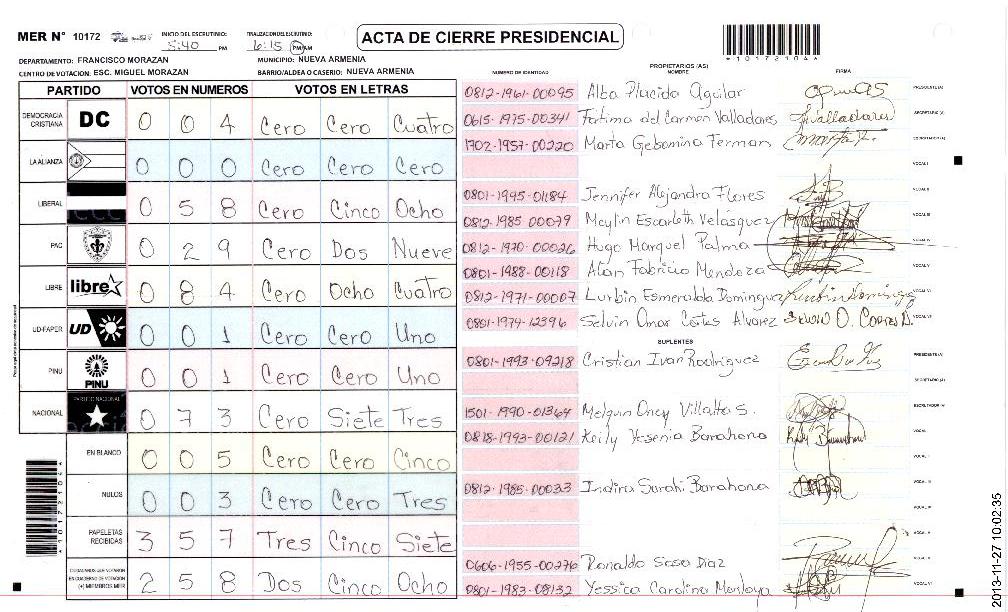 MER N° 10172
INICIO DEL ESCRUTINIO: 5:40 PM
FINALIZACION DEL ESCRUTINIO: 6:15 PM/AM
ACTA DE CIERRE PRESIDENCIAL
*10172104*
DEPARTAMENTO: FRANCISCO MORAZAN
MUNICIPIO: NUEVA ARMENIA
CENTRO DE VOTACION: ESC. MIGUEL MORAZAN
BARRIO/ALDEA O CASERIO: NUEVA ARMENIA
PARTIDO VOTOS EN NUMEROS VOTOS EN LETRAS
DEMOCRACIA CRISTIANA DC 0 0 4 Cero Cero Cuatro
LA ALIANZA 0 0 0 Cero Cero Cero
LIBERAL 0 5 8 Cero Cinco Ocho
PAC 0 2 9 Cero Dos Nueve
LIBRE libre 0 8 4 Cero Ocho Cuatro
UD-FAPER UD 0 0 1 Cero Cero Uno
PINU PINU 0 0 1 Cero Cero Uno
NACIONAL PARTIDO NACIONAL 0 7 3 Cero Siete Tres
EN BLANCO 0 0 5 Cero Cero Cinco
NULOS 0 0 3 Cero Cero Tres
PAPELETAS RECIBIDAS 3 5 7 Tres Cinco Siete
CIUDADANOS QUE VOTARON EN CUADERNO DE VOTACION (+) MIEMBROS MER 2 5 8 Dos Cinco Ocho
*10172104*
NUMERO DE IDENTIDAD
PROPIETARIOS (AS)
NOMBRE
FIRMA
0812-1961-00095 Alba Placida Aguilar PRESIDENTE (A)
0615-1975-00341 Fatima del Carmen Valladares SECRETARIO (A)
1702-1957-00220 Marta Gebomina Ferman ESCRUTADOR (A)
VOCAL I
0801-1995-01184 Jennifer Alejandra Flores VOCAL II
0812-1985-00079 Maylin Escarleth Velásquez VOCAL III
0812-1970-00026 Hugo Marquel Palma VOCAL IV
0801-1988-00118 Alan Fabricio Mendoza VOCAL V
0812-1971-00007 Lurbin Esmeralda Dominguez VOCAL VI
0801-1979-12396 Selvin Omar Cortes Alvarez VOCAL VII
SUPLENTES
0801-1993-09218 Cristian Ivan Rodriguez PRESIDENTE (A)
SECRETARIO (A)
1501-1990-01364 Oney Villalta S. ESCRUTADOR (A)
0818-1993-00121 Keily Yesenia Barahona VOCAL I
VOCAL II
0812-1985-00033 Indira Sarahi Barahona VOCAL III
VOCAL IV
VOCAL V
0606-1955-00276 Ronaldo Soso Diaz VOCAL VI
0801-1983-08132 Yessica Carolina Montoya VOCAL VII
2013-11-27 10:02:35